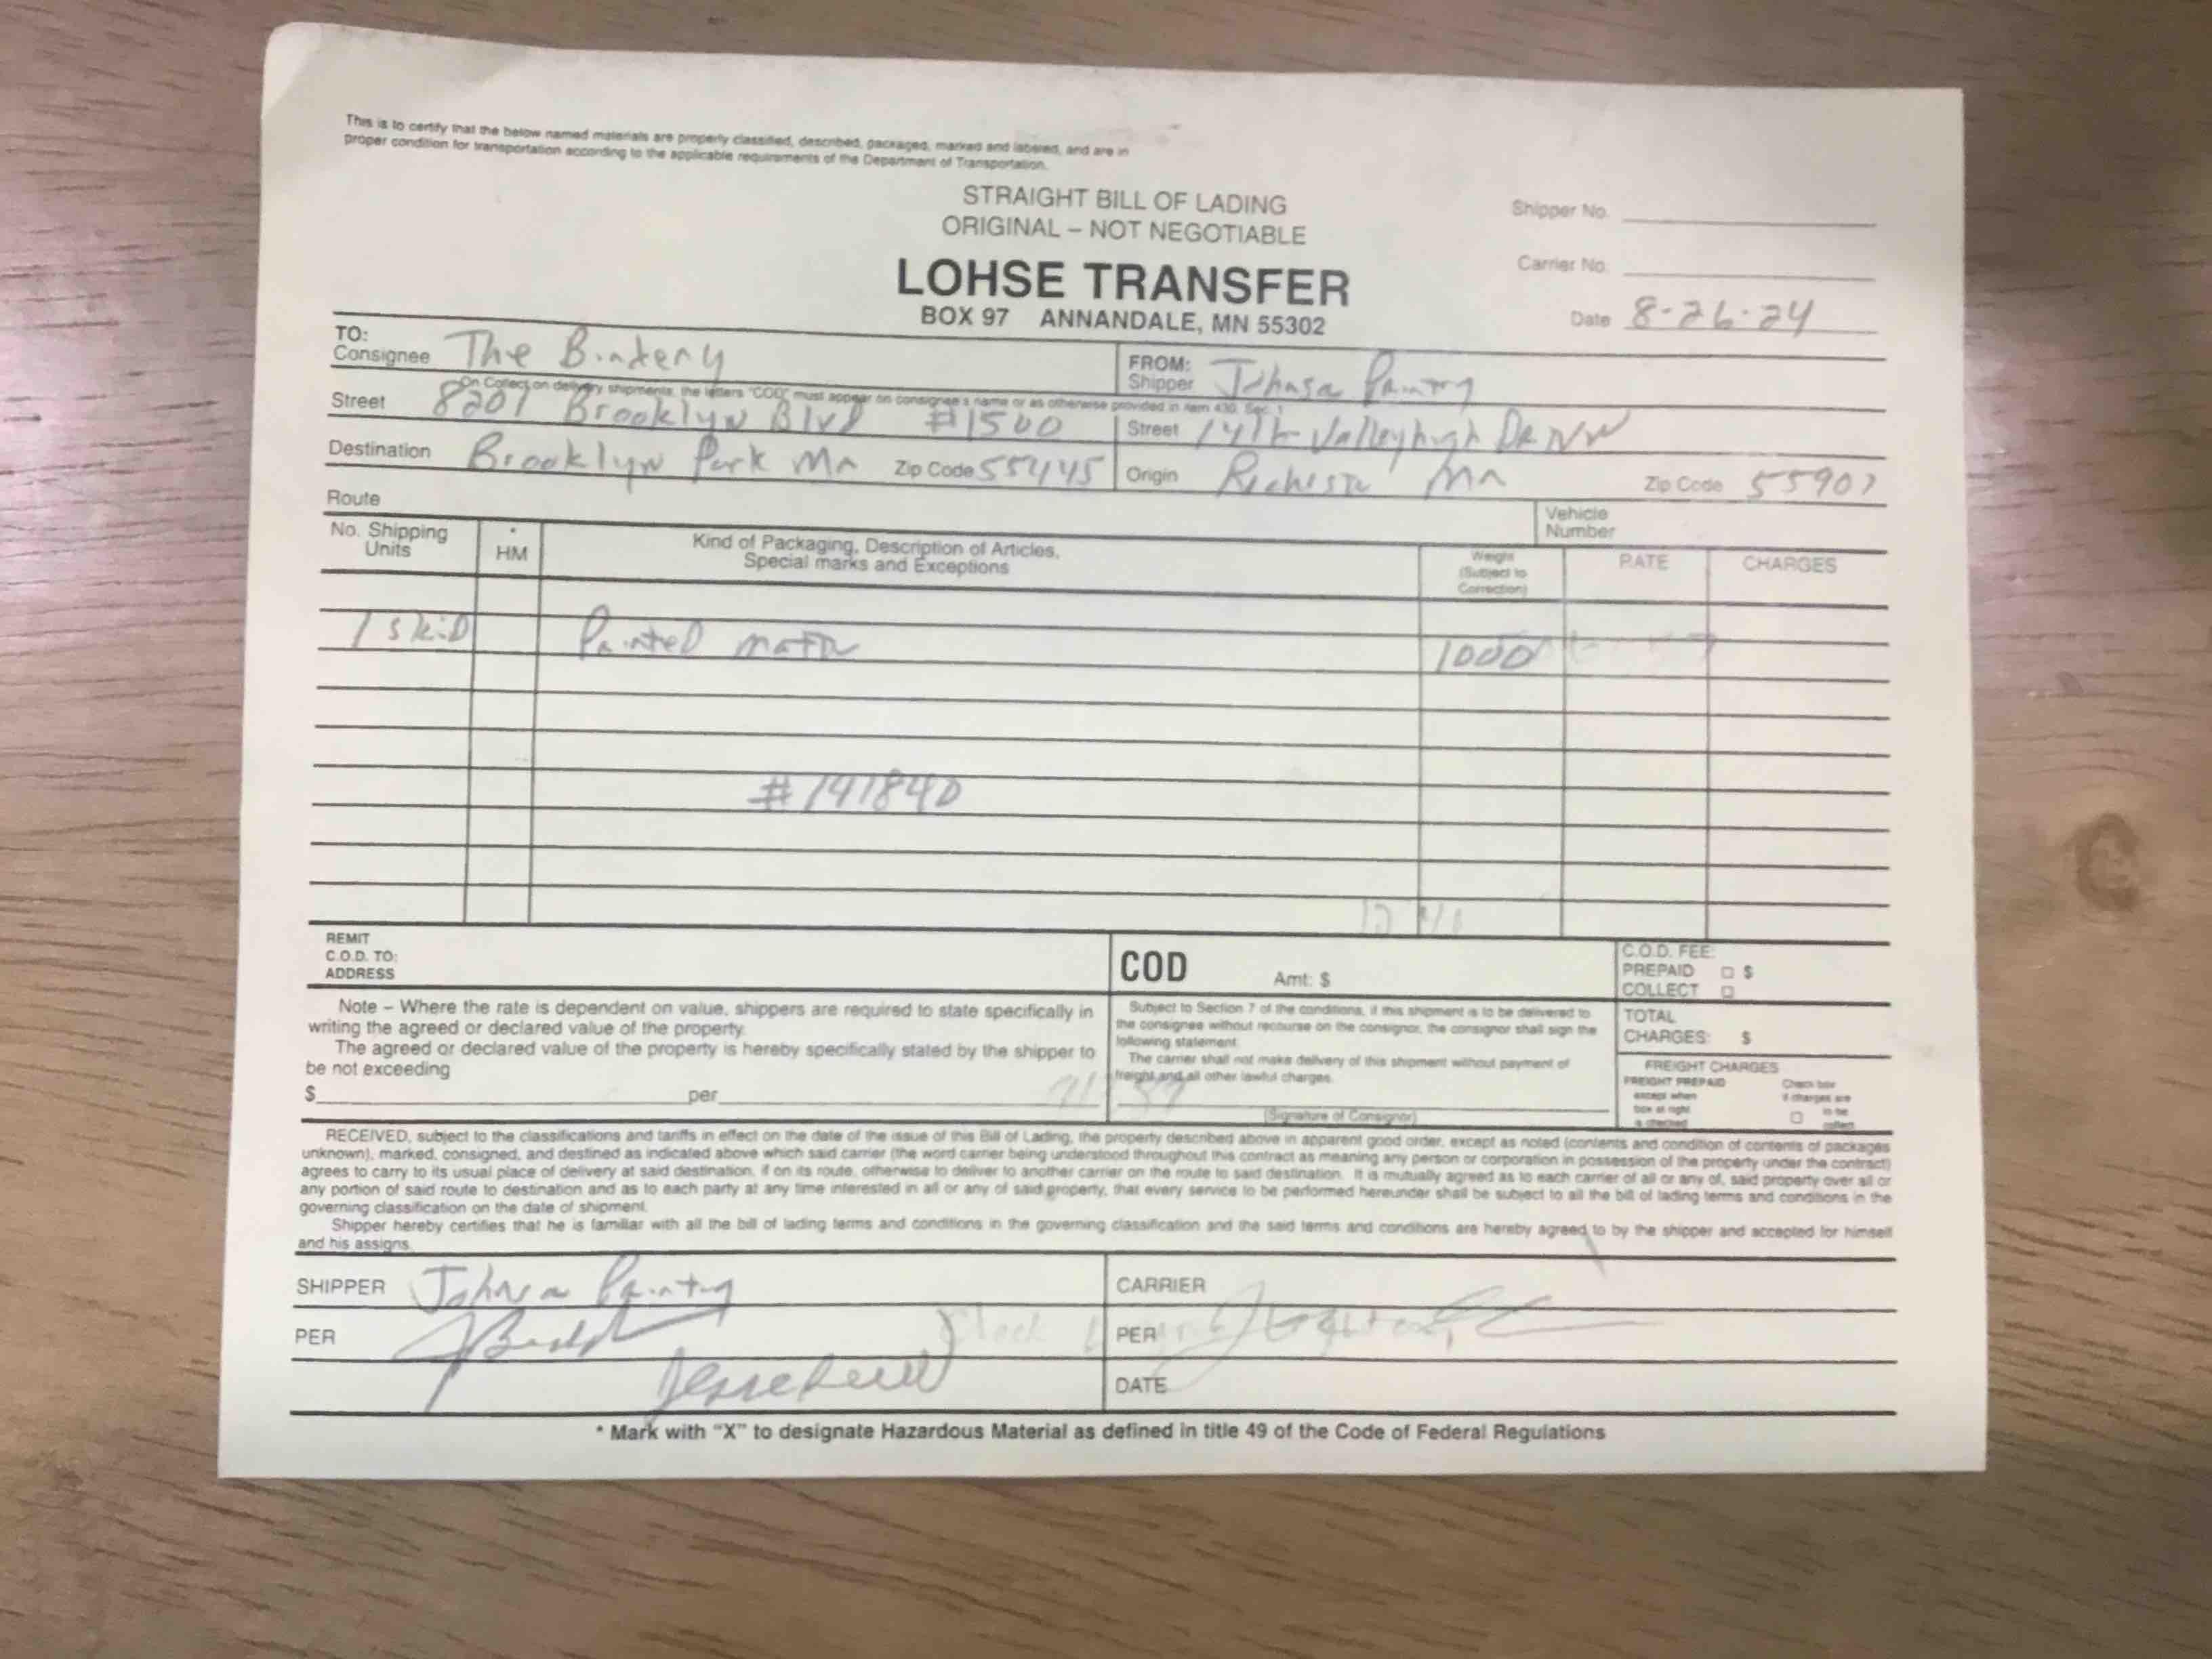 This is to certify that the below named materials are properly classified, described, packaged, marked and labeled, and are in
proper condition for transportation according to the applicable requirements of the Department of Transportation.
STRAIGHT BILL OF LADING
ORIGINAL – NOT NEGOTIABLE
LOHSE TRANSFER
BOX 97 ANNANDALE, MN 55302
Shipper No.
Carrier No.
Date 8-26-24
TO:
Consignee The Bindery
FROM:
Shipper Johnson Printing
On Collect on delivery shipments, the letters "COD" must appear on consignee's name or as otherwise provided in item 430, Sec. 1
Street 8201 Brooklyn Blvd #1500
Street Valleyhigh Dr NW
Destination Brooklyn Park Mn Zip Code 55445
Origin Rochester Mn Zip Code 55901
Route
Vehicle
Number
No. Shipping
Units
*
HM
Kind of Packaging, Description of Articles,
Special marks and Exceptions
Weight
(Subject to
Correction)
RATE
CHARGES
1 skid Printed matter 1000
#141840
REMIT
C.O.D. TO:
ADDRESS
COD Amt: $
C.O.D. FEE:
PREPAID $
COLLECT
Note – Where the rate is dependent on value, shippers are required to state specifically in
writing the agreed or declared value of the property.
The agreed or declared value of the property is hereby specifically stated by the shipper to
be not exceeding
$ per
Subject to Section 7 of the conditions, if this shipment is to be delivered to
the consignee without recourse on the consignor, the consignor shall sign the
following statement
The carrier shall not make delivery of this shipment without payment of
freight and all other lawful charges.
(Signature of Consignor)
TOTAL
CHARGES: $
FREIGHT CHARGES
FREIGHT PREPAID
except when
box at right
is checked
Check box
if charges are
to be
collect
RECEIVED, subject to the classifications and tariffs in effect on the date of the issue of this Bill of Lading, the property described above in apparent good order, except as noted (contents and condition of contents of packages
unknown), marked, consigned, and destined as indicated above which said carrier (the word carrier being understood throughout this contract as meaning any person or corporation in possession of the property under the contract)
agrees to carry to its usual place of delivery at said destination, if on its route, otherwise to deliver to another carrier on the route to said destination. It is mutually agreed as to each carrier of all or any of, said property over all or
any portion of said route to destination and as to each party at any time interested in all or any of said property, that every service to be performed hereunder shall be subject to all the bill of lading terms and conditions in the
governing classification on the date of shipment.
Shipper hereby certifies that he is familiar with all the bill of lading terms and conditions in the governing classification and the said terms and conditions are hereby agreed to by the shipper and accepted for himself
and his assigns.
SHIPPER Johnson Printing
CARRIER
PER
PER
DATE
* Mark with "X" to designate Hazardous Material as defined in title 49 of the Code of Federal Regulations